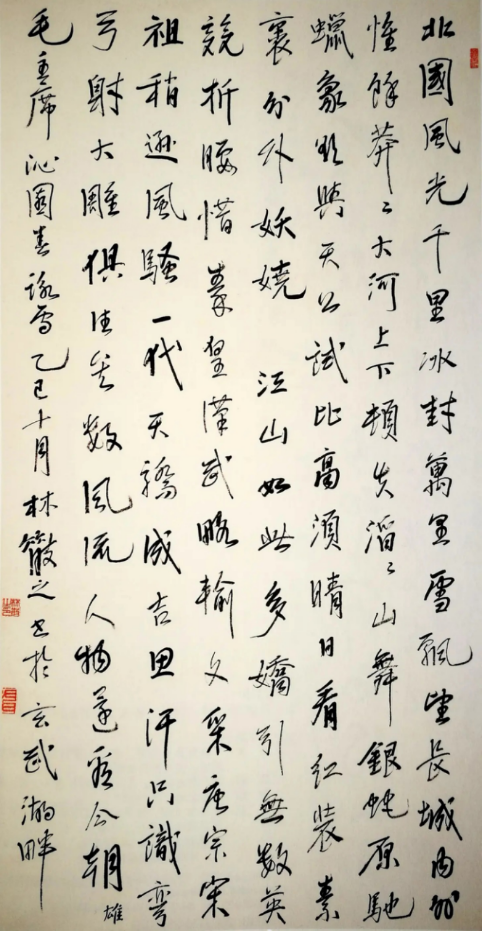 北國風光千里冰封萬里雪飄望長城內外
惟餘莽〻大河上下頓失滔〻山舞銀蛇原馳
蠟象欲與天公試比高須晴日看紅裝素
裹分外妖嬈 江山如此多嬌引無數英
競折腰惜秦皇漢武略輸文采唐宗宋
祖稍遜風騷一代天驕成吉思汗只識彎
弓射大雕俱往矣數風流人物還看今朝
雄
毛主席沁園春詠雪乙巳十月林散之書於玄武湖畔